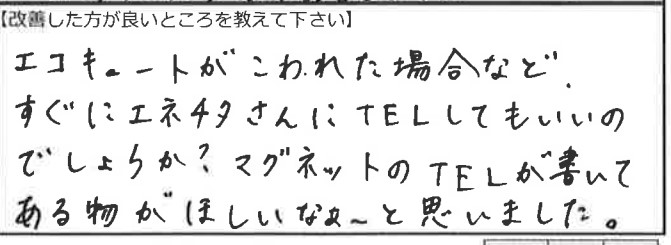 【改善した方が良いところを教えて下さい】
エコキュートがこわれた場合など、
すぐにエネチタさんにTELしてもいいの
でしょうか?マグネットのTELが書いて
ある物がほしいなぁ~と思いました。